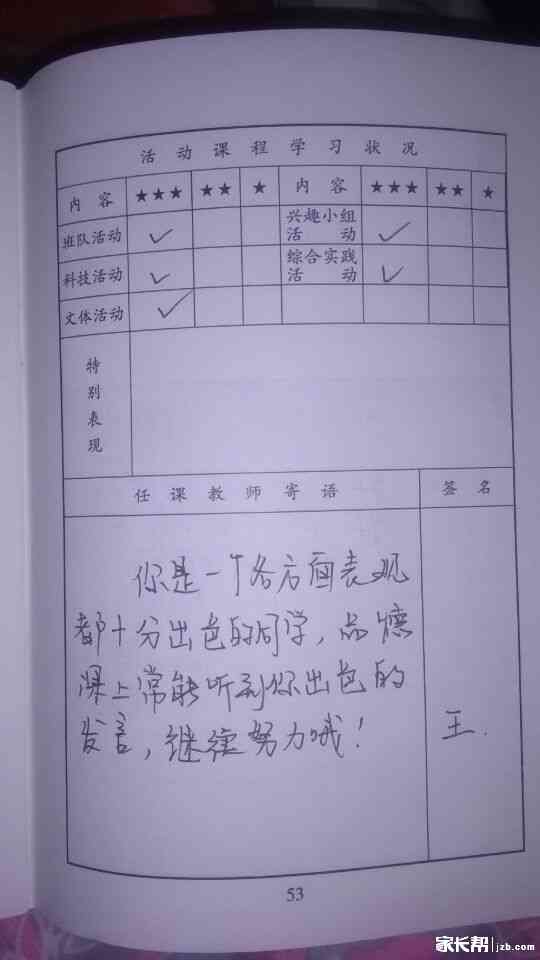 活动课程学习状况
内容 ★★★ ★★ ★ 内容 ★★★ ★★ ★
班队活动 ✓ 兴趣小组活动 ✓
科技活动 ✓ 综合实践活动 ✓
文体活动 ✓
特别表现
任课教师寄语 签名
你是一个各方面表现
都十分出色的同学，品德
课上常能听到你出色的
发言，继续努力哦！
王.
53
家长帮 jzb.com